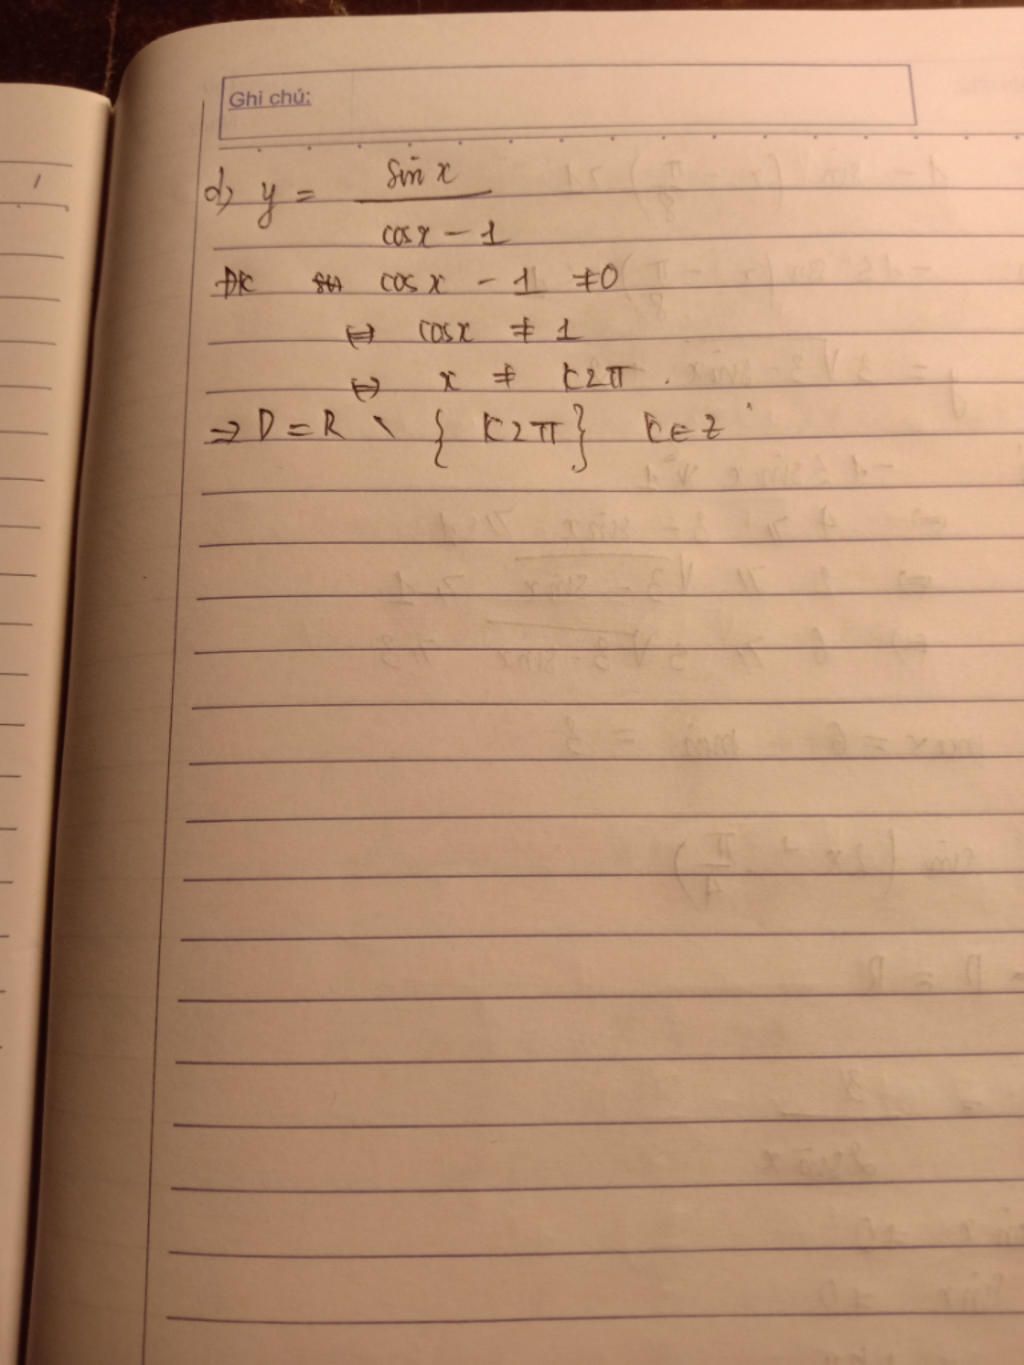 Ghi chú:
d) y = sin x / cos x - 1
ĐK cos x - 1 ≠ 0
⇔ cos x ≠ 1
⇔ x ≠ k2π.
⇒ D = R \ { k2π } k ∈ Z